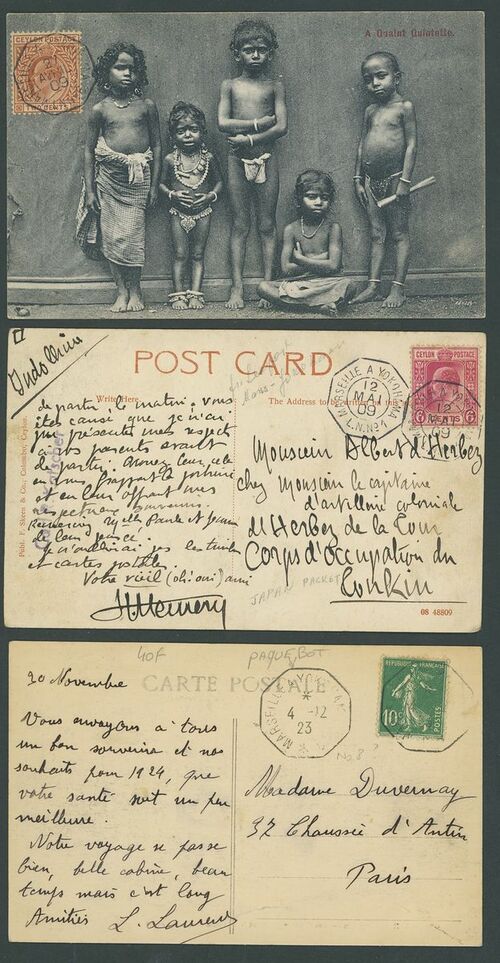 A Quaint Quintette.
CEYLON POSTAGE
TWO CENTS
MARSEILLE
21
AVRIL
09
Indo Chine
POST CARD
Write Here.
The Address to be written
Publ. F. Skeen & Co., Colombo, Ceylon.
MARSEILLE A YOKOHAMA
12
MAI
09
L.N. No1
CEYLON POSTAGE
6 CENTS
12
09
de partir le matin. Vous
êtes cause que je n'ai
pu présenter mes respects
à vos parents avant
de partir.
et en leur offrant mes
respectueux souvenirs.
Remerciez
de leur
je n'oublierai pas les timbres
et cartes postales
Votre vieil (oh! oui) ami
Monsieur Albert d'Herbez
chez Monsieur le capitaine
d'artillerie coloniale
d'Herbez de la Tour
Corps d'occupation du
Tonkin
JAPAN PACKET
08 48809
40F
PAQUEBOT
CARTE POSTALE
MARSEILLE
4-12
23
No 8?
REPUBLIQUE FRANÇAISE
10c
POSTES
30 Novembre
Vous envoyons à tous
un bon souvenir et nos
souhaits pour 1924, que
votre santé soit un peu
meilleure.
Notre voyage se passe
bien, belle cabine, beau
temps mais c'est long
Amitiés L. Laurent
Madame Duvernay
37 Chaussée d'Antin
Paris